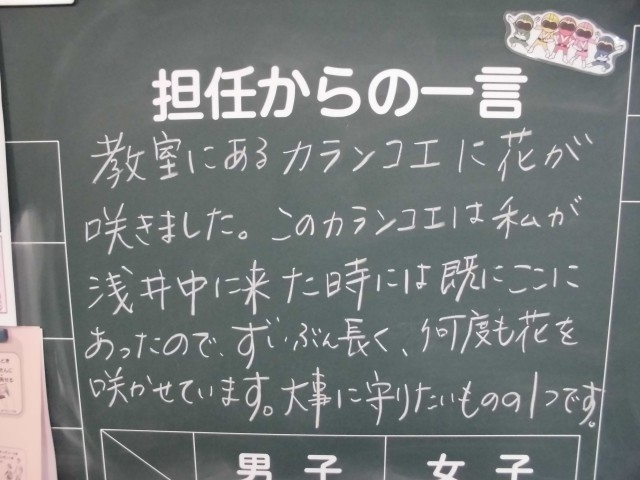 担任からの一言
教室にあるカランコエに花が
咲きました。このカランコエは私が
浅井中に来た時には既にここに
あったので、ずいぶん長く、何度も花を
咲かせています。大事に守りたいものの1つです。
男子
女子